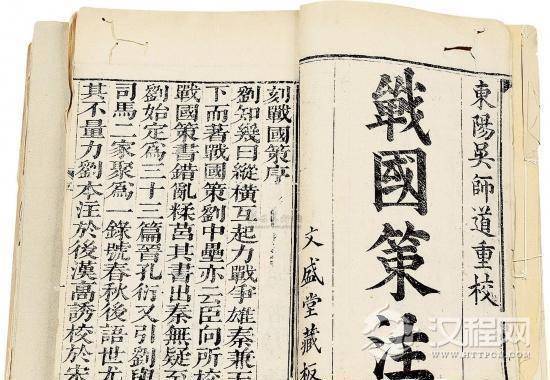 東陽吳師道重校
戰國策注
文盛堂藏板
刻戰國策序
劉知幾曰縱橫互起力戰爭雄秦兼天
下而著戰國策劉中壘亦云臣向所校
戰國策書錯亂糅莒其書出秦無疑至
劉始定為三十三篇晉孔衍又引劉
司馬二家聚為一錄號春秋後語世尤
其不量力劉本注於後漢高誘校於宋
汉程网